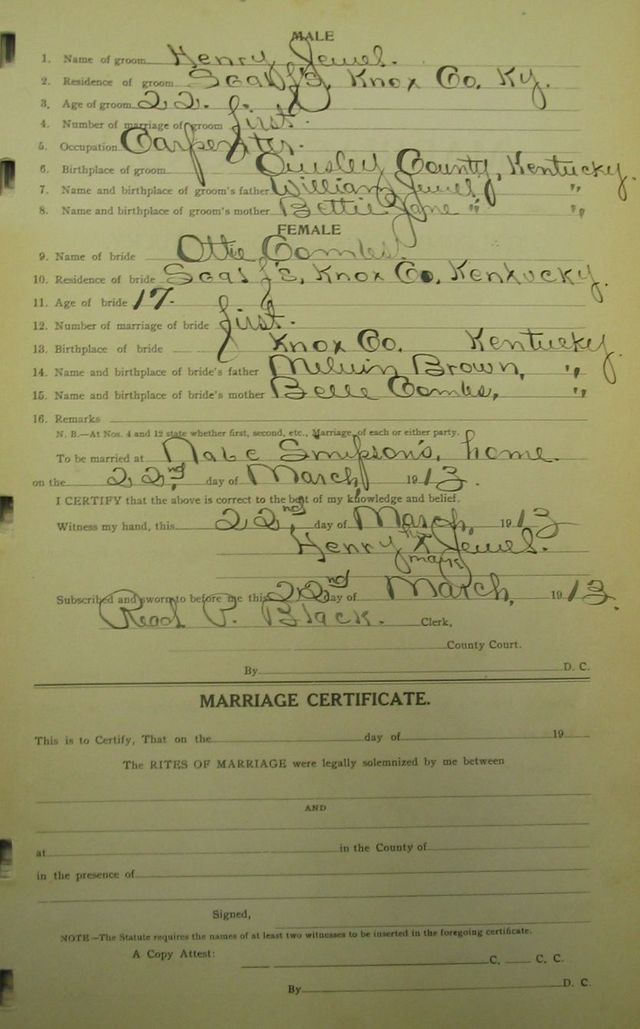 MALE
1. Name of groom Henry Jewel.
2. Residence of groom Scalf's, Knox Co. Ky.
3. Age of groom 22.
4. Number of marriage of groom first.
5. Occupation Carpenter.
6. Birthplace of groom Owsley County, Kentucky.
7. Name and birthplace of groom's father William Jewel "
8. Name and birthplace of groom's mother Bettie Jane " "
FEMALE
9. Name of bride Ottie Combs.
10. Residence of bride Scalf's, Knox Co, Kentucky.
11. Age of bride 17.
12. Number of marriage of bride first.
13. Birthplace of bride Knox Co. Kentucky.
14. Name and birthplace of bride's father Melvin Brown, "
15. Name and birthplace of bride's mother Belle Combs, "
16. Remarks
N. B.—At Nos. 4 and 12 state whether first, second, etc., Marriage, of each or either party.
To be married at Simpson's, home.
on the 22nd day of March 1913.
I CERTIFY that the above is correct to the best of my knowledge and belief.
Witness my hand, this 22nd, day of March, 1913
his
Henry X Jewel.
mark
Subscribed and sworn to before me this 22nd day of March, 1913.
Read P. Black. Clerk,
County Court.
By D. C.
MARRIAGE CERTIFICATE.
This is to Certify, That on the day of 19
The RITES OF MARRIAGE were legally solemnized by me between
AND
at in the County of
in the presence of
Signed,
NOTE—The Statute requires the names of at least two witnesses to be inserted in the foregoing certificate.
A Copy Attest:
C. C. C.
By D. C.